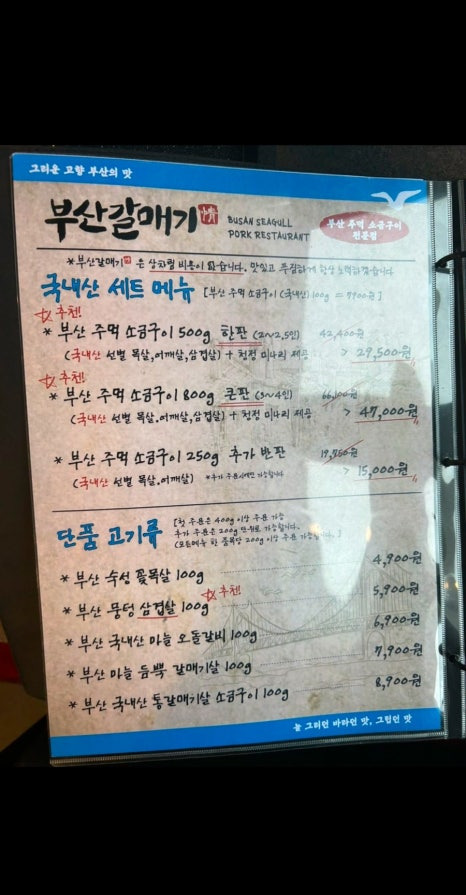 그리운 고향 부산의 맛
부산갈매기 情
BUSAN SEAGULL
PORK RESTAURANT
부산 주먹 소금구이
전문점
*부산갈매기 은 상차림 비용이 없습니다. 맛있고 푸짐하게 항상 노력하겠습니다
국내산 세트 메뉴 [부산 주먹 소금구이(국내산)100g = 7900원]
추천!
* 부산 주먹 소금구이 500g 한판 (2~2.5인) 42,400원
(국내산 선별 목살,어깨살,삼겹살) + 청정 미나리 제공 > 29,500원
추천!
* 부산 주먹 소금구이 800g 큰판 (3~4인) 66,100원
(국내산 선별 목살,어깨살,삼겹살) + 청정 미나리 제공 > 47,000원
* 부산 주먹 소금구이 250g 추가 반판 19,750원
(국내산 선별 목살,어깨살) *추가 주문시에만 가능합니다 > 15,000원
단품 고기류
[첫 주문은 400g 이상 주문 가능
추가 주문은 200g 단위로 가능합니다.
(모든메뉴 한 품목당 200g 이상 주문 가능합니다.]
* 부산 숙성 꽃목살 100g 4,900원
추천!
* 부산 뭉텅 삼겹살 100g 5,900원
* 부산 국내산 마늘 오돌갈비 100g 6,900원
* 부산 마늘 듬뿍 갈매기살 100g 7,900원
* 부산 국내산 통갈매기살 소금구이 100g 8,900원
늘 그리던 바다인 맛, 그립던 맛